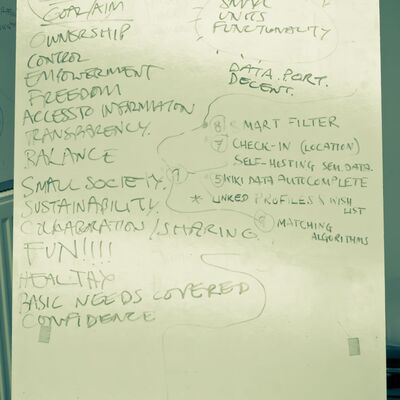 GOAL/AIM
OWNERSHIP
CONTROL
EMPOWERMENT
FREEDOM
ACCESS TO INFORMATION
TRANSPARENCY.
BALANCE
SMALL SOCIETY.
SUSTAINABILITY.
COLLABORATION/SHARING.
FUN!!!!
HEALTHY
BASIC NEEDS COVERED
CONFIDENCE
SMALL
UNITS
FUNCTIONALITY
DATA. PORT.
DECENT.
8 SMART FILTER
7 CHECK-IN (LOCATION)
SELF-HOSTING SEN. DATA.
5 WIKI DATA AUTOCOMPLETE
* LINKED PROFILES \ WISH
LIST
MATCHING
ALGORITHMS